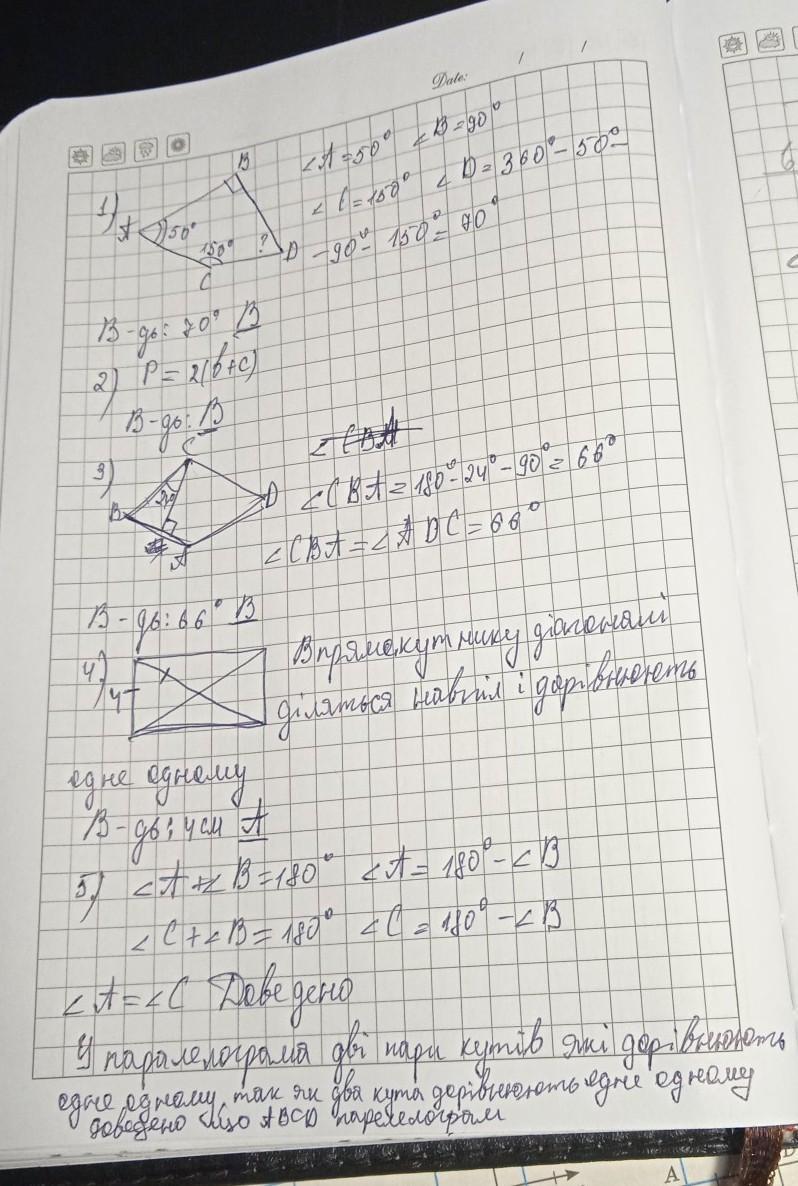 Date: / /
1) A B C D 50° 150° ? ∠A = 50° ∠B = 90°
∠C = 150° ∠D = 360° - 50° -
- 90° - 150° = 70°
В-дь: 70° В
2) P = 2(b+c)
В-дь: В
3) B C D A 24°
∠CBA = 180° - 24° - 90° = 66°
∠CBA = ∠ADC = 66°
В-дь: 66° В
4) 4 В прямокутнику діагоналі
діляться навпіл і дорівнюють
одне одному
В-дь: 4 см А
5) ∠A + ∠B = 180° ∠A = 180° - ∠B
∠C + ∠B = 180° ∠C = 180° - ∠B
∠A = ∠C Доведено
У паралелограма дві пари кутів які дорівнюють
одне одному, так як два кута дорівнюють одне одному
доведено що ABCD паралелограм
6
A